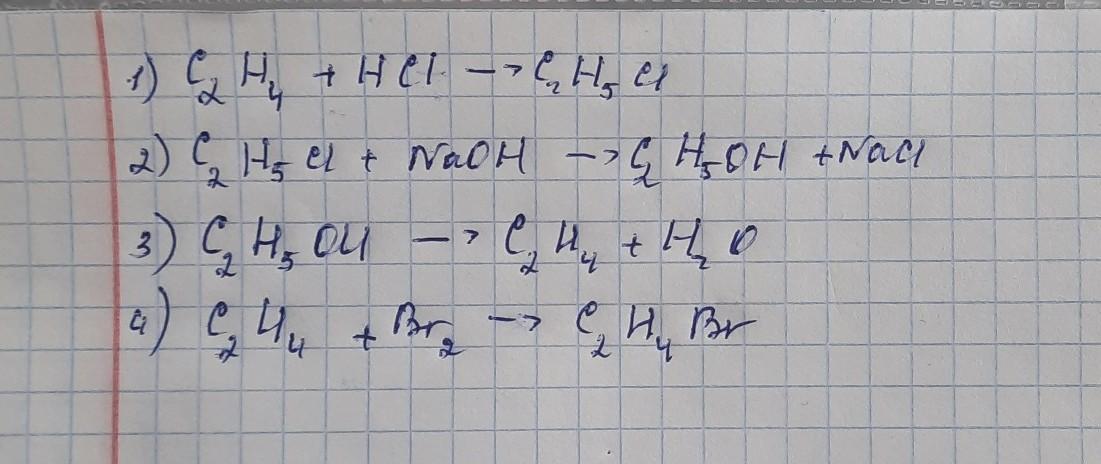 1) C₂H₄ + HCl → C₂H₅Cl
2) C₂H₅Cl + NaOH → C₂H₅OH + NaCl
3) C₂H₅OH → C₂H₄ + H₂O
4) C₂H₄ + Br₂ → C₂H₄Br